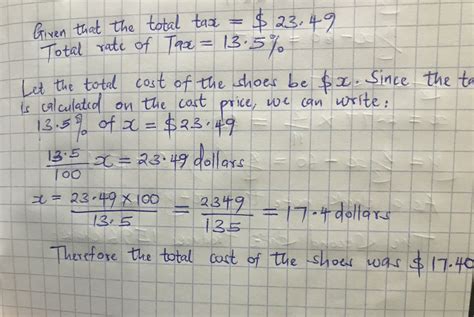 Given that the total tax = $ 23.49
Total rate of Tax = 13.5%
Let the total cost of the shoes be $x. Since the ta
is calculated on the cost price, we can write:
13.5% of x = $23.49
13.5/100 x = 23.49 dollars
x = 23.49 × 100/13.5 = 2349/135 = 17.4 dollars
Therefore the total cost of the shoes was $ 17.40